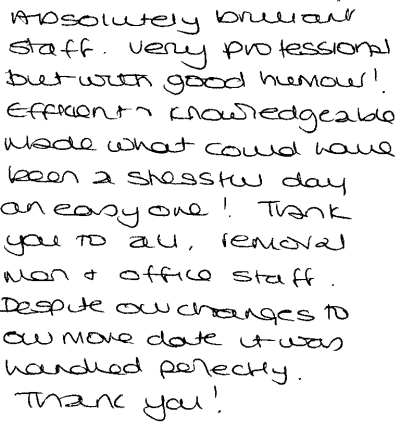 Absolutely brilliant
staff. Very professional
but with good humour!
Efficient + knowledgeable
Made what could have
been a stressful day
an easy one! Thank
you to all, removal
men + office staff.
Despite our changes to
our move date it was
handled perfectly.
Thank you!